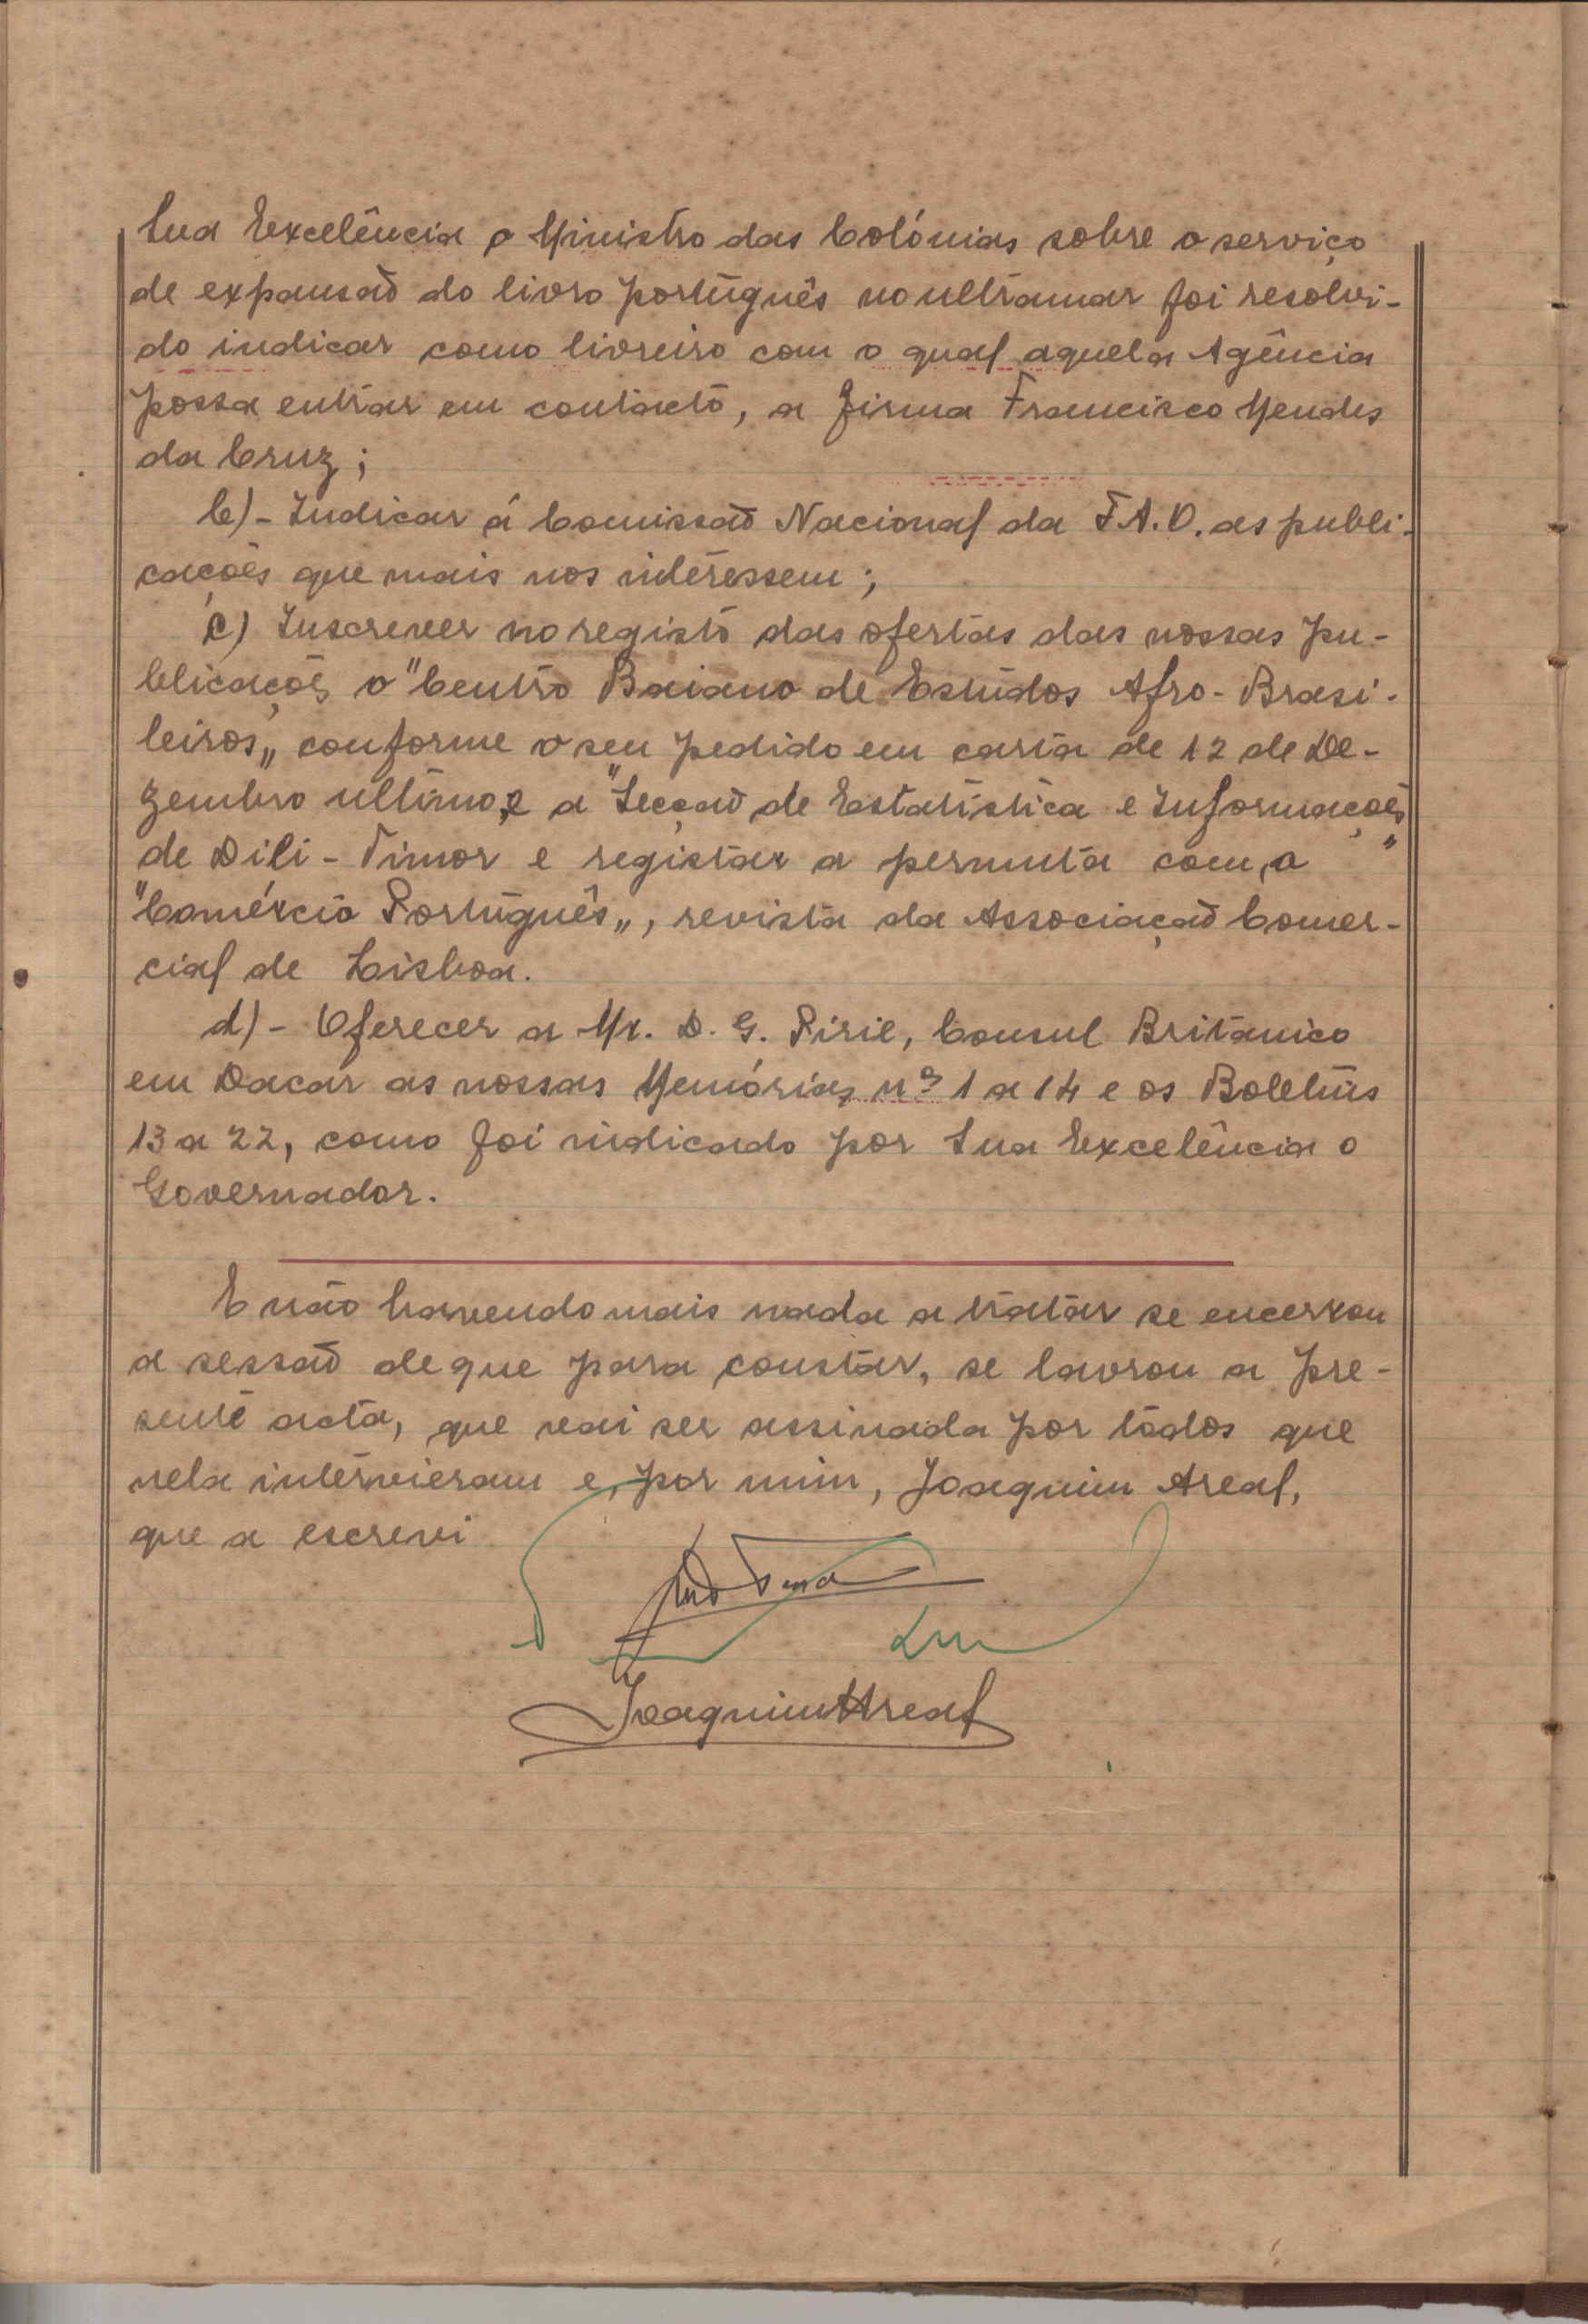 Sua Excelência o Ministro das Colónias sobre o serviço
de expansaõ do livro português no ultramar foi resolvi-
do indicar como livreiro com o qual aquela Agência
possa entrar em contacto, a firma Francisco Mendes
da Cruz;
b)- Indicar á Comissaõ Nacional da F.A.O. as publi-
cações que mais nos interessem;
c) Inscrever no registo das ofertas das nossas pu-
blicações o "Centro Baiano de Estudos Afro-Brasi-
leiros„ conforme o seu pedido em carta de 12 de De-
zembro ultimo, e a "Secçaõ de Estatística e Informações
de Dili - Timor" e registar a permuta com o
"Comércio Português„, revista da Associaçaõ Comer-
cial de Lisboa.
d)- Oferecer a Mr. D. G. Pirie, Consul Britanico
em Dacar as nossas Memórias nºs 1 a 14 e os Boletins
13 a 22, como foi indicado por Sua Excelência o
Governador.
E não havendo mais nada a tratar se encerrou
a sessaõ de que para constar, se lavrou a pre-
sente acta, que vai ser assinada por todos que
nela intervieram e, por mim, Joaquim Areal,
que a escrevi
Joaquim Areal